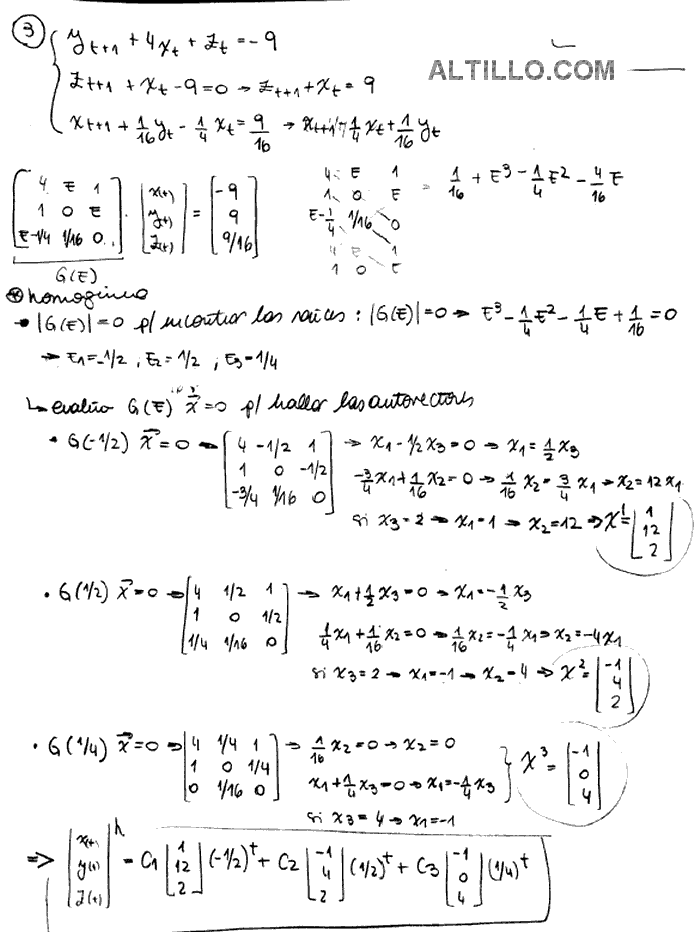 ③ y_{t+1} + 4x_t + z_t = -9
ALTILLO.COM
z_{t+1} + x_t - 9 = 0 → z_{t+1} + x_t = 9
x_{t+1} + 1/16 y_t - 1/4 x_t = 9/16 → x_{t+1} 1/4 x_t + 1/16 y_t
[4 E 1; 1 0 E; E-1/4 1/16 0] · [x(t); y(t); z(t)] = [-9; 9; 9/16]
4 E 1
1 0 E
E-1/4 1/16 0
4 E 1
1 0 E
= 1/16 + E³ - 1/4 E² - 4/16 E
G(E)
homogénea
→ |G(E)| = 0 p/ encontrar las raíces : |G(E)| = 0 → E³ - 1/4 E² - 1/4 E + 1/16 = 0
→ E1 = -1/2 , E2 = 1/2 , E3 = 1/4
↳ evalúo G(E) x⃗ = 0 p/ hallar los autovectores
• G(-1/2) x⃗ = 0 → [4 -1/2 1; 1 0 -1/2; -3/4 1/16 0] → x1 - 1/2 x3 = 0 → x1 = 1/2 x3
-3/4 x1 + 1/16 x2 = 0 → 1/16 x2 = 3/4 x1 → x2 = 12 x1
si x3 = 2 → x1 = 1 → x2 = 12 ⇒ X¹ = [1; 12; 2]
• G(1/2) x⃗ = 0 → [4 1/2 1; 1 0 1/2; 1/4 1/16 0] → x1 + 1/2 x3 = 0 → x1 = -1/2 x3
1/4 x1 + 1/16 x2 = 0 → 1/16 x2 = -1/4 x1 → x2 = -4x1
si x3 = 2 → x1 = -1 → x2 = 4 ⇒ X² = [-1; 4; 2]
• G(1/4) x⃗ = 0 ⇒ [4 1/4 1; 1 0 1/4; 0 1/16 0] → 1/16 x2 = 0 → x2 = 0
x1 + 1/4 x3 = 0 → x1 = -1/4 x3 } X³ = [-1; 0; 4]
si x3 = 4 → x1 = -1
⇒ [x(t); y(t); z(t)]^h = C1 [1; 12; 2] (-1/2)^t + C2 [-1; 4; 2] (1/2)^t + C3 [-1; 0; 4] (1/4)^t